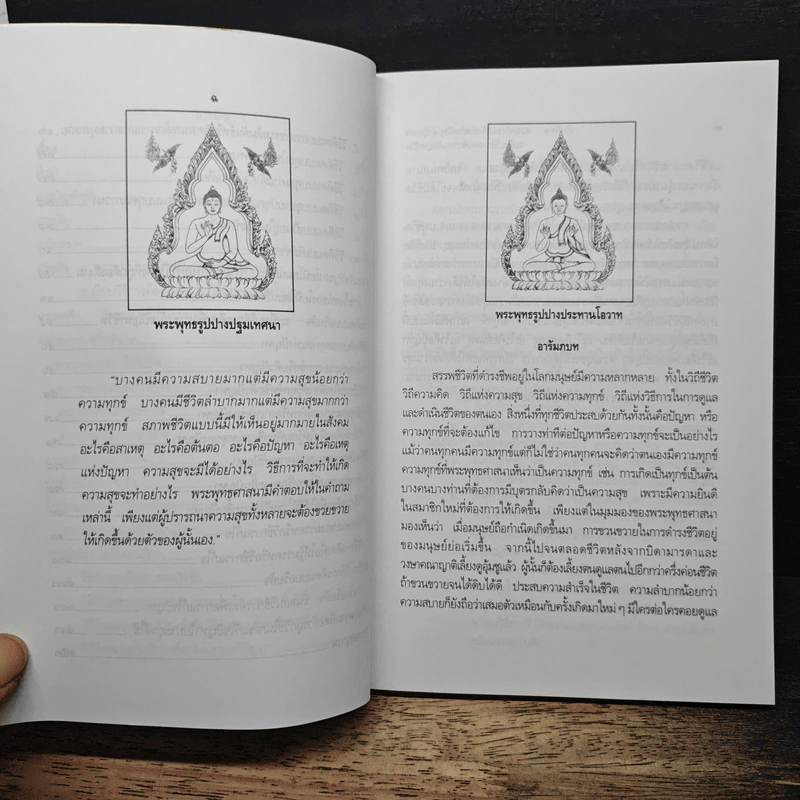 ฉ
พระพุทธรูปปางปฐมเทศนา
"บางคนมีความสบายมากแต่มีความสุขน้อยกว่า
ความทุกข์ บางคนมีชีวิตลำบากมากแต่มีความสุขมากกว่า
ความทุกข์ สภาพชีวิตแบบนี้มีให้เห็นอยู่มากมายในสังคม
อะไรคือสาเหตุ อะไรคือต้นตอ อะไรคือปัญหา อะไรคือเหตุ
แห่งปัญหา ความสุขจะมีได้อย่างไร วิธีการที่จะทำให้เกิด
ความสุขจะทำอย่างไร พระพุทธศาสนามีคำตอบให้ในคำถาม
เหล่านี้ เพียงแต่ผู้ปรารถนาความสุขทั้งหลายจะต้องขวยขวาย
ให้เกิดขึ้นด้วยตัวของผู้นั้นเอง."
พระพุทธรูปปางประทานโอวาท
อารัมภบท
สรรพชีวิตที่ดำรงชีพอยู่ในโลกมนุษย์มีความหลากหลาย ทั้งในวิถีชีวิต
วิถีความคิด วิถีแห่งความสุข วิถีแห่งความทุกข์ วิถีแห่งวิธีการในการดูแล
และดำเนินชีวิตของตนเอง สิ่งหนึ่งที่ทุกชีวิตประสบด้วยกันทั้งนั้นคือปัญหา หรือ
ความทุกข์ที่จะต้องแก้ไข การวางท่าทีต่อปัญหาหรือความทุกข์จะเป็นอย่างไร
แม้ว่าทุกคนมีความทุกข์แต่ก็ไม่ใช่ว่าทุกคนจะคิดว่าตนเองมีความทุกข์
ความทุกข์ที่พระพุทธศาสนาเห็นว่าเป็นความทุกข์ เช่น การเกิดเป็นทุกข์เป็นต้น
บางคนบางท่านที่ต้องการมีบุตรกลับคิดว่าเป็นความสุข เพราะมีความยินดี
ในสมาชิกใหม่ที่ต้องการให้เกิดขึ้น เพียงแต่ในมุมมองของพระพุทธศาสนา
มองเห็นว่า เมื่อมนุษย์ถือกำเนิดเกิดขึ้นมา การขวนขวายในการดำรงชีวิตอยู่
ของมนุษย์ย่อมเริ่มขึ้น จากนี้ไปจนตลอดชีวิตหลังจากบิดามารดาและ
วงษาคณาญาติเลี้ยงดูอุ้มชูแล้ว ผู้นั้นก็ต้องเลี้ยงตนดูแลตนไปอีกกว่าครึ่งค่อนชีวิต
ถ้าขวนขวายจนได้ดิบได้ดี ประสบความสำเร็จในชีวิต ความลำบากน้อยกว่า
ความสบายก็ยังถือว่าเสมอตัวเหมือนกับครั้งเกิดมาใหม่ ๆ มีใครต่อใครคอยดูแล